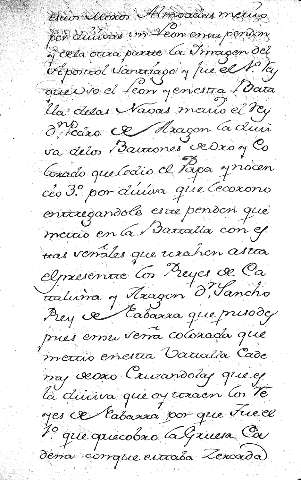 estos Moros Almoades metio
por divisas un Leon en su pendon
y de la otra parte la Imagen del
Apostol Santiago y fue el 1º. Rey
que uso el Leon y en esta Bata
lla delas Navas metio el Rey
dⁿ. Pedro de Aragon la divi
sa delos Bastones de oro y Co
lorado que le dio el Papa ynocen
cio 3º. por divisa que le corono
entregandole este pendon que
metio en la Battalia con es
tas señales que trahen asta
el presente los Reyes de Ca
taluña y Aragon dⁿ. Sancho
Rey de Nabarra que puso des
pues en su seña colorada que
metio en esta Vattalia Cade
nas de oro Cruzandolas que es
la divisa que oy traen los Re
yes de Nabarra por que fue el
1º. que quebro la Gruesa Ca
dena con que estaba Zercada